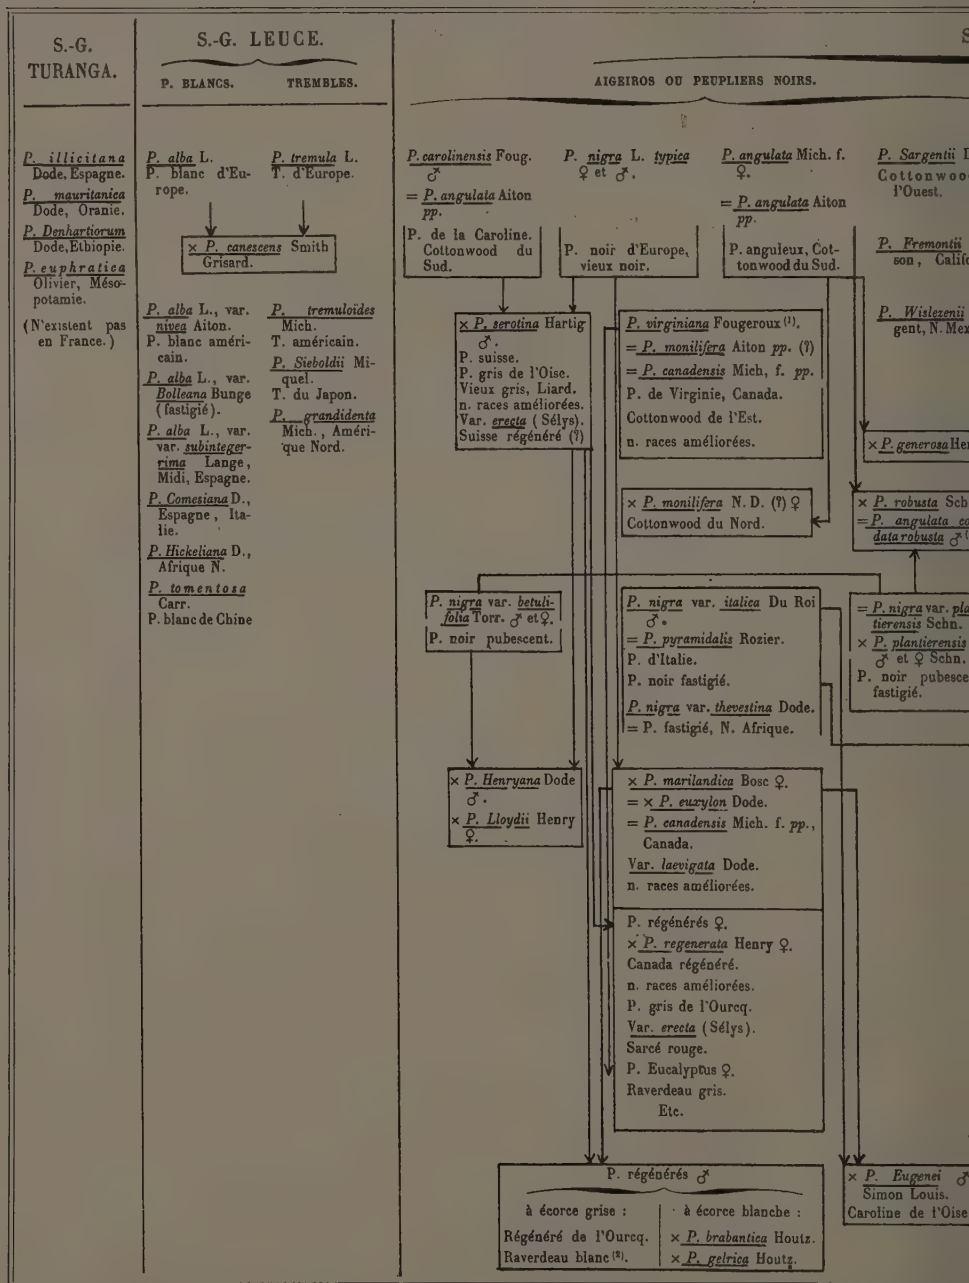 S.-G.
TURANGA.
P. illicitana
Dode, Espagne.
P. mauritanica
Dode, Oranie.
P. Denhartiorum
Dode, Ethiopie.
P. euphratica
Olivier, Méso-
potamie.
(N'existent pas
en France.)
S.-G. LEUCE.
P. BLANCS.
TREMBLES.
P. alba L.
P. blanc d'Eu-
rope.
P. tremula L.
T. d'Europe.
× P. canescens Smith
Grisard.
P. alba L., var.
nivea Aiton.
P. blanc améri-
cain.
P. alba L., var.
Bolleana Bunge
(fastigié).
P. alba L., var.
var. subinteger-
rima Lange,
Midi, Espagne.
P. Comesiana D.,
Espagne, Ita-
lie.
P. Hickeliana D.,
Afrique N.
P. tomentosa
Carr.
P. blanc de Chine
P. tremuloides
Mich.
T. américain.
P. Sieboldii Mi-
quel.
T. du Japon.
P. grandidenta
Mich., Améri-
que Nord.
S
AIGEIROS OU PEUPLIERS NOIRS.
P. carolinensis Foug.
♂
= P. angulata Aiton
pp.
P. de la Caroline.
Cottonwood du
Sud.
P. nigra L. typica
♀ et ♂.
P. noir d'Europe,
vieux noir.
P. angulata Mich. f.
♀.
= P. angulata Aiton
pp.
P. anguleux, Cot-
tonwood du Sud.
P. Sargentii D
Cottonwoo
l'Ouest.
P. Fremontii
son, Califo
P. Wislezenii
gent, N. Mex
× P. serotina Hartig
♂.
P. suisse.
P. gris de l'Oise.
Vieux gris, Liard.
n. races améliorées.
Var. erecta (Sélys).
Suisse régénéré (?)
P. virginiana Fougeroux (1).
= P. monilifera Aiton pp. (?)
= P. canadensis Mich, f. pp.
P. de Virginie, Canada.
Cottonwood de l'Est.
n. races améliorées.
× P. generosa Hen
× P. monilifera N. D. (?) ♀
Cottonwood du Nord.
× P. robusta Sch
= P. angulata co
data robusta ♂ (
P. nigra var. betuli-
folia Torr. ♂ et ♀.
P. noir pubescent.
P. nigra var. italica Du Roi
♂.
= P. pyramidalis Rozier.
P. d'Italie.
P. noir fastigié.
P. nigra var. thevestina Dode.
= P. fastigié, N. Afrique.
= P. nigra var. pla
tierensis Schn.
× P. plantierensis
♂ et ♀ Schn.
P. noir pubesce
fastigié.
× P. Henryana Dode
♂.
× P. Lloydii Henry
♀.
× P. marilandica Bosc ♀.
= × P. euxylon Dode.
= P. canadensis Mich. f. pp.,
Canada.
Var. laevigata Dode.
n. races améliorées.
P. régénérés ♀.
× P. regenerata Henry ♀.
Canada régénéré.
n. races améliorées.
P. gris de l'Ourcq.
Var. erecta (Sélys).
Sarcé rouge.
P. Eucalyptus ♀.
Raverdeau gris.
Etc.
P. régénérés ♂
à écorce grise :
Régénéré de l'Ourcq.
Raverdeau blanc (2).
à écorce blanche :
× P. brabantica Houtz.
× P. gelrica Houtz.
× P. Eugenei ♂
Simon Louis.
Caroline de l'Oise